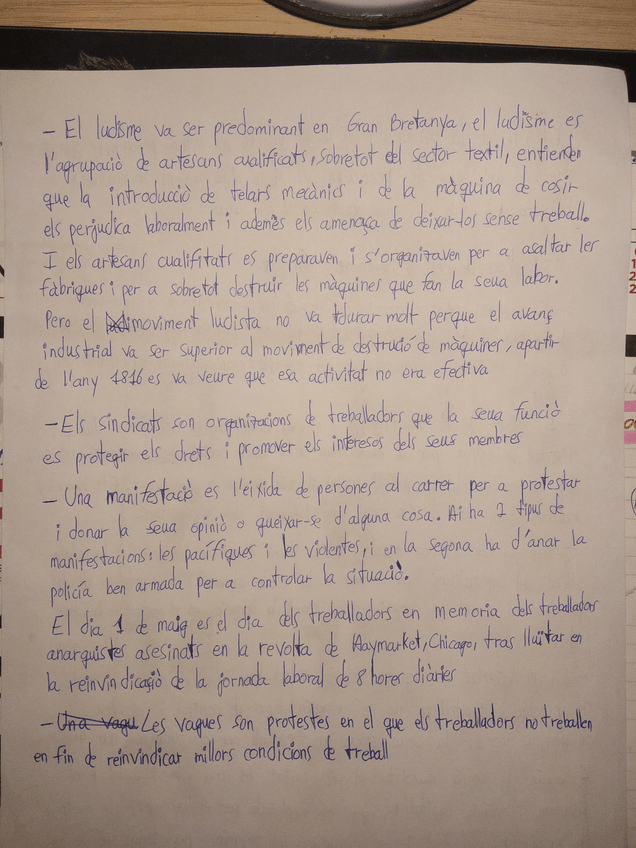 - El ludisme va ser predominant en Gran Bretanya, el ludisme es
l'agrupació de artesans cualificats, sobretot del sector textil, entienden
que la introducció de telars mecànics i de la màquina de cosir
els perjudica laboralment i ademès els amenaça de deixar-los sense treball.
I els artesans cualifitats es preparaven i s'organitzaven per a asaltar les
fàbriques i per a sobretot destruir les màquines que fan la seua labor.
Pero el moviment ludista no va durar molt perque el avanç
industrial va ser superior al moviment de destrució de màquines, apartir
de l'any 1816 es va veure que esa activitat no era efectiva
- Els sindicats son organizacions de treballadors que la seua funció
es protegir els drets i promover els interesos dels seus membres
- Una manifestació es l'eixida de persones al carrer per a protestar
i donar la seua opinió o queixar-se d'alguna cosa. Ai ha 2 tipus de
manifestacions: les pacífiques i les violentes, i en la segona ha d'anar la
policía ben armada per a controlar la situació.
El dia 1 de maig es el dia dels treballadors en memoria dels treballadors
anarquistes asesinats en la revolta de Haymarket, Chicago, tras lluitar en
la reinvindicació de la jornada laboral de 8 hores diàries
- Una vagu Les vagues son protestes en el que els treballadors no treballen
en fin de reinvindicar millors condicions de treball